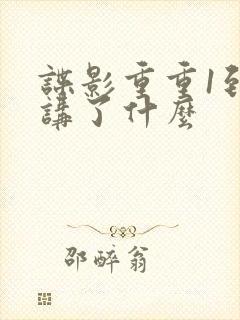 諜影重重1到
講了什麼
邵醉翁